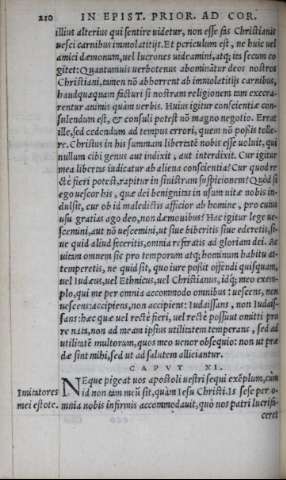 210 IN EPIST. PRIOR. AD COR.
illius alterius qui sentire uidetur, non esse fas Christianis
uesci carnibus immolatitijs. Et periculum est, ne huic uel
amici dæmonum, uel lucrones uideamini, atq; ita secum co
gitet: Quantumuis uerbotenus abominetur deos nostros
Christiani, tamen nō abhorrent ab immolatitijs carnibus,
haudquaquam facturi si nostram religionem tam execra-
rentur animis quàm uerbis. Huius igitur conscientiæ con-
sulendum est, & consuli potest nō magno negotio. Errat
ille, sed cedendum ad tempus errori, quem nō possis tolle-
re. Christus in his summam libertatē nobis esse uoluit, qui
nullum cibi genus aut indixit, aut interdixit. Cur igitur
mea libertas iudicatur ab aliena conscientia? Cur quod re
ctè fieri potest, rapitur in sinistram suspicionem? Quòd si
ego uescor his, quæ dei benignitas in usum uitæ nobis in-
dulsit, cur ob id maledictis afficior ab homine, pro cuius
usu gratias ago deo, non dæmonibus? Hac igitur lege ue-
scemini, aut nō uescemini, ut siue bibēritis siue ederetis, si-
ue quid aliud feceritis, omnia referatis ad gloriam dei. Ac
uitam omnem sic pro temporum atq; hominum habitu at-
temperetis, ne quid sit, quo iure possit offendi quisquam,
uel Iudæus, uel Ethnicus, uel Christianus, idq; meo exem-
plo, qui me per omnia accommodo omnibus: uescens, non
uescens: accipiens, non accipiens: Iudaissans, non Iudais-
sans: hæc quæ uel rectè fieri, uel rectè possunt omitti pro
re nata, non ad meam ipsius utilitatem temperans, sed ad
utilitatē multorum, quos meo uenor obsequio: non ut præ
dæ sint mihi, sed ut ad salutem alliciantur.
CAPVT XI.
NEque pigeat uos apostoli uestri sequi exēplum, cùm
Imitatores id non tam meū sit, quàm Iesu Christi. Is sese per o-
mei estote. mnia nobis infirmis accommodauit, quò nos patri lucrifi-
ceret